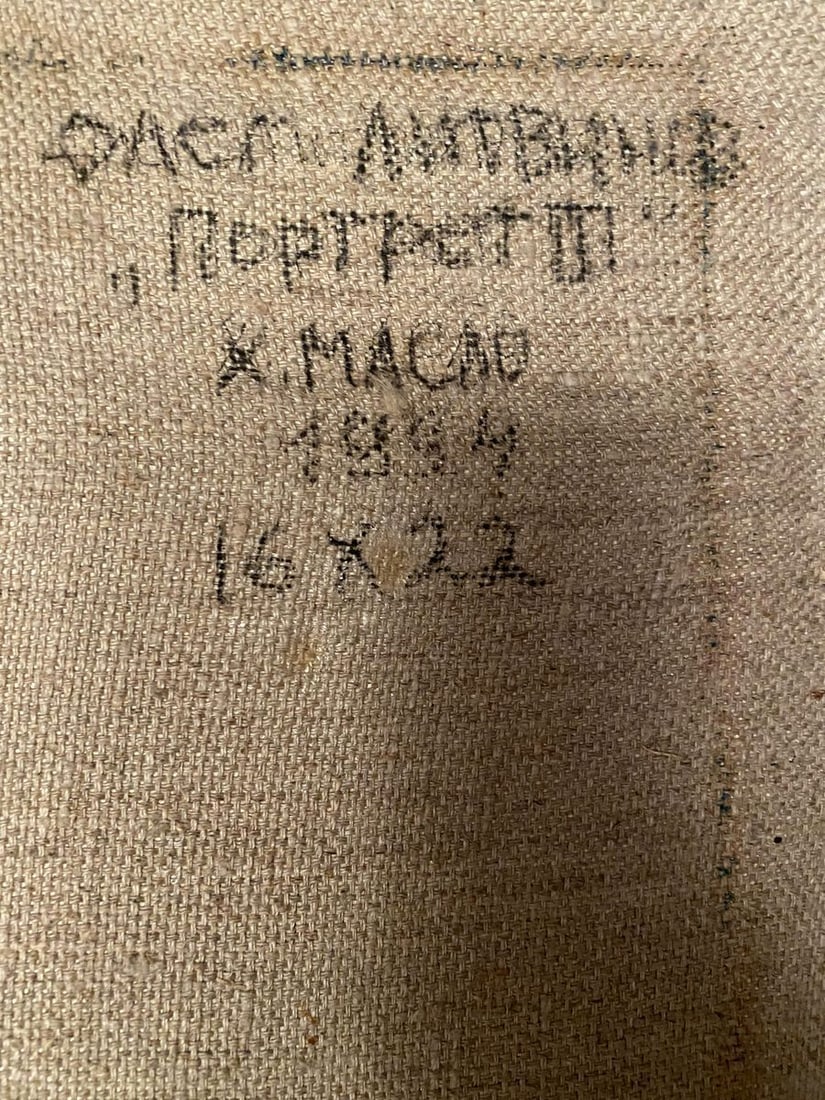 ОЛЕГ ЛИТВИНОВ
„Портрет III"
Х. МАСЛО
1994
16 x 22